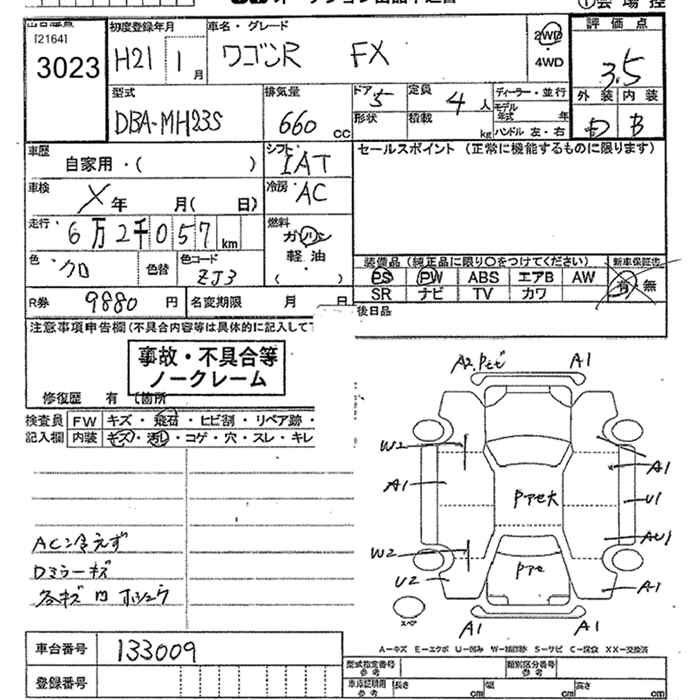 3023
初度登録年月
H21 1月
車名・グレード
ワゴンR FX
2WD
・4WD
評価点
3.5
外装 内装
D B
型式
DBA-MH23S
排気量
660 cc
ドア・ 5
形状
定員 4 人
積載 kg
ディーラー・並行
モデル年式 年
ハンドル 左・右
車歴
自家用・( )
シフト・
IAT
冷房・
AC
セールスポイント (正常に機能するものに限ります)
車検
X年 月( 日)
走行
6万2千057km
燃料
ガソリン
軽油
( )
色・
クロ
色替
色コード
ZJ3
装備品 (純正品に限り○をつけてください)
PS PW ABS エアB AW
SR ナビ TV カワ
新車保証書
有・無
R券 9880 円
名変期限 月 日
後日品
注意事項申告欄(不具合内容等は具体的に記入して下
事故・不具合等
ノークレーム
修復歴 有 箇所
検査員 FW キズ・飛石・ヒビ割・リペア跡・
記入欄 内装 キズ・汚れ・コゲ・穴・スレ・キレ
AC冷えず
Dミラーキズ
各キズ凹ホシュウ
A2.Pセビ A1
W2
A1
A1
Pアセ大
U1
W2
AU1
U2
Pアセ
A1
スペア
A1 A1
A-キズ E-エクボ U-凹み W-補修跡 S-サビ C-腐食 XX-交換済
車台番号 133009
登録番号
型式指定番号 参考
類別区分番号 参考
車庫証明用 参考 長さ cm 幅 cm 高さ cm